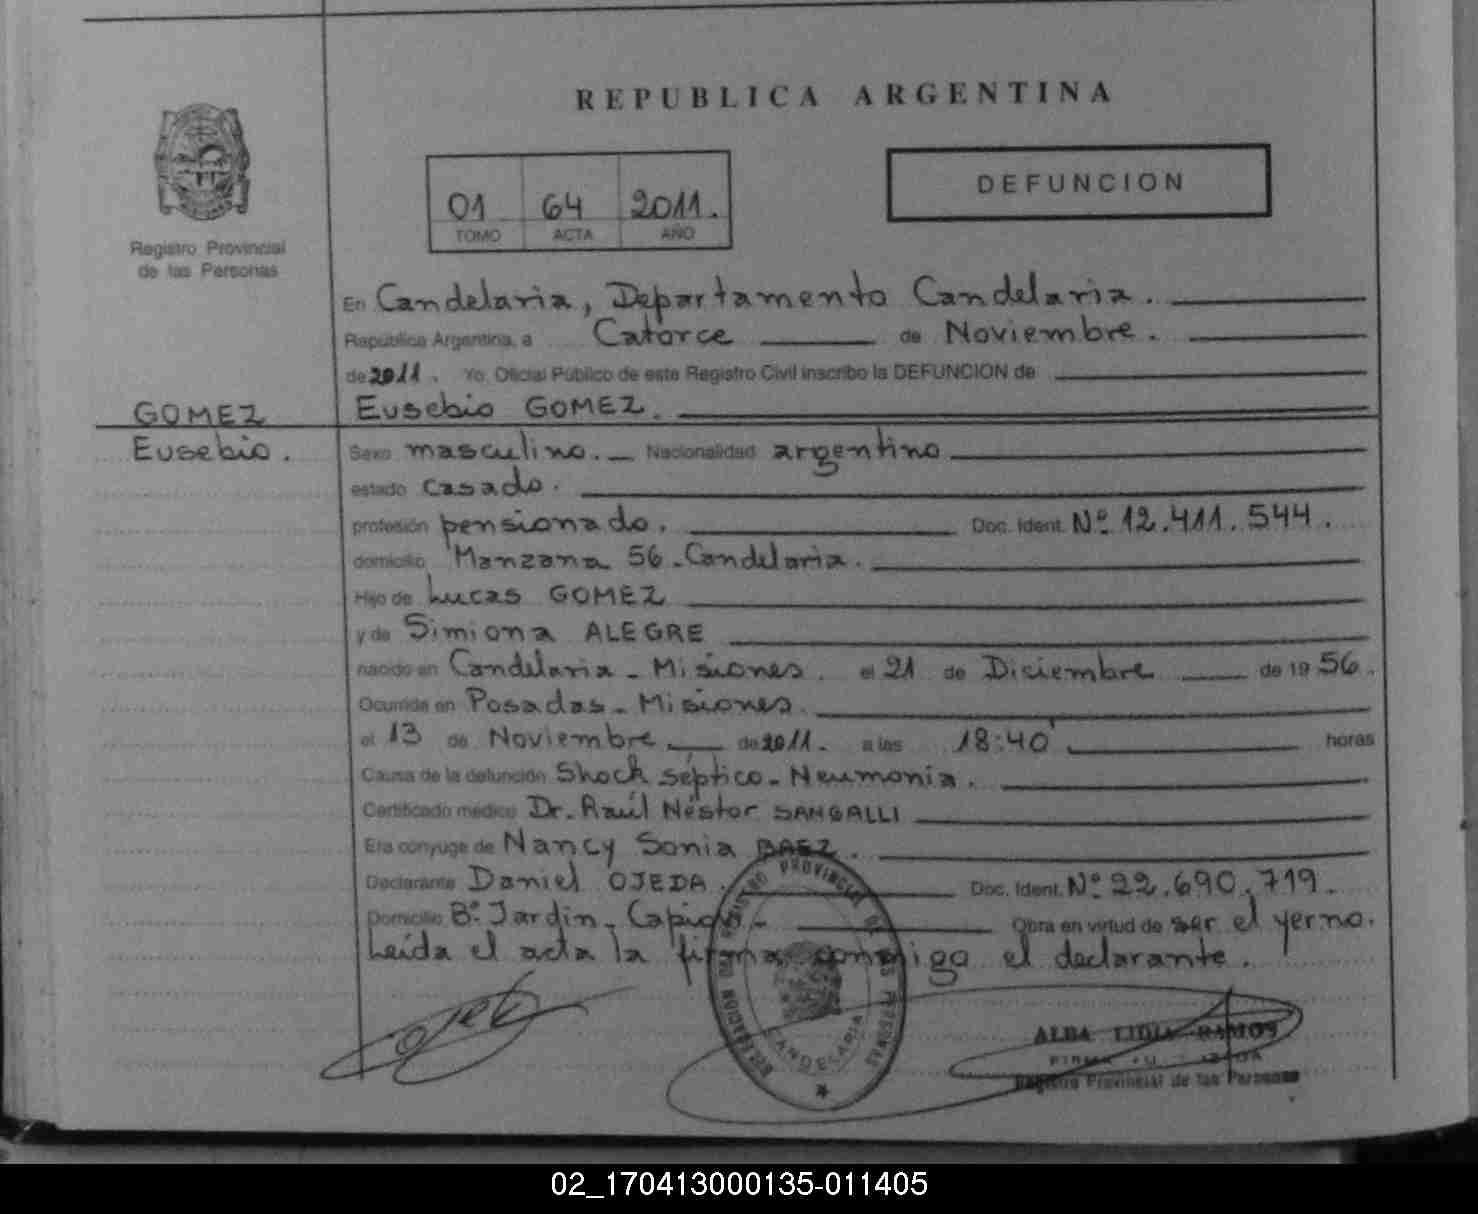 REPUBLICA ARGENTINA
DEFUNCION
01 64 2011.
TOMO ACTA AÑO
Registro Provincial
de las Personas
En Candelaria, Departamento Candelaria.
República Argentina, a Catorce de Noviembre.
de 2011. Yo, Oficial Público de este Registro Civil inscribo la DEFUNCION de
GOMEZ Eusebio GOMEZ.
Eusebio. Sexo masculino. Nacionalidad argentino
estado casado.
profesión pensionado. Doc. Ident. Nº 12.411.544.
domicilio Manzana 56 - Candelaria.
Hijo de Lucas GOMEZ
y de Simiona ALEGRE
nacido en Candelaria - Misiones. el 21 de Diciembre de 19 56.
Ocurrida en Posadas - Misiones.
el 13 de Noviembre de 2011. a las 18:40' horas
Causa de la defunción Shock séptico - Neumonía.
Certificado médico Dr. Raúl Néstor SANGALLI
Era cónyuge de Nancy Sonia BAEZ.
Declarante Daniel OJEDA. Doc. Ident. Nº 22.690.719.
Domicilio Bº Jardin - Capioví - Obra en virtud de ser el yerno.
Leída el acta la firma conmigo el declarante.
DELEGACION DEL REGISTRO PROVINCIAL DE LAS PERSONAS
CANDELARIA
ALBA LIDIA RAMOS
Registro Provincial de las Personas
02_170413000135-011405